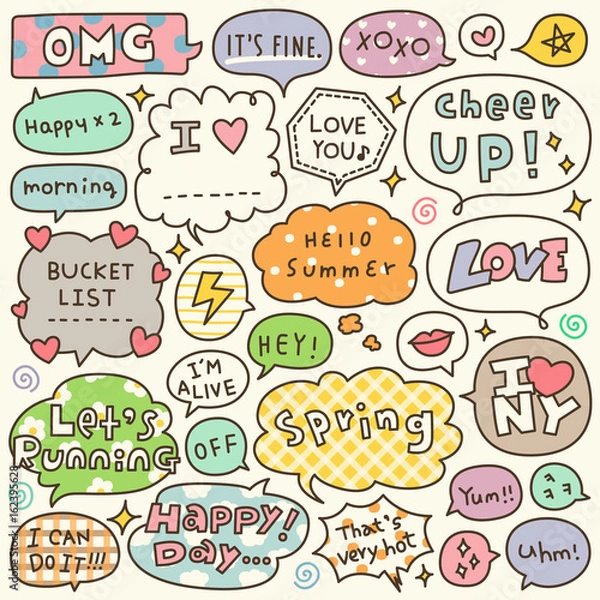 OMG
IT'S FINE.
XOXO
Happy x 2
I
LOVE
YOU♪
cheer
UP!
morning
BUCKET
LIST
HELLO
Summer
LOVE
HEY!
I'M
ALIVE
I
NY
Let's
Running
OFF
Spring
Yum!!
ㅋㅋㅋ
I CAN
DO IT!!!
Happy!
Day...
That's
very hot
Uhm!
Adobe Stock | #162395628